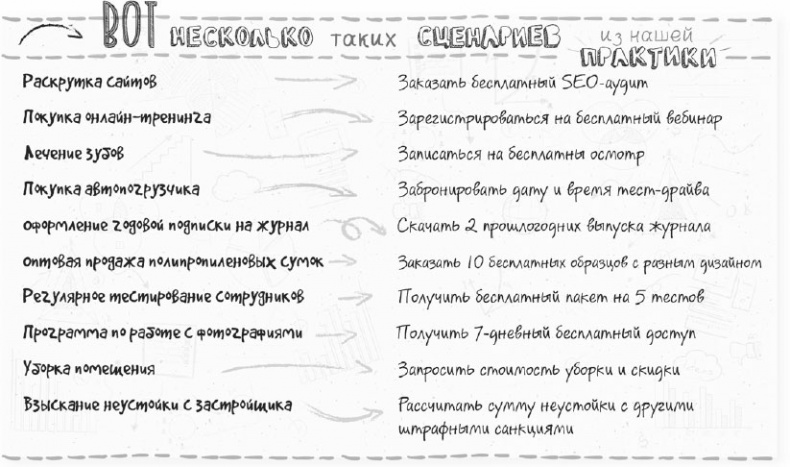 ВОТ НЕСКОЛЬКО таких СЦЕНАРИЕВ из нашей ПРАКТИКИ
Раскрутка сайтов Заказать бесплатный SEO-аудит
Покупка онлайн-тренинга Зарегистрироваться на бесплатный вебинар
Лечение зубов Записаться на бесплатны осмотр
Покупка автопогрузчика Забронировать дату и время тест-драйва
оформление годовой подписки на журнал Скачать 2 прошлогодних выпуска журнала
оптовая продажа полипропиленовых сумок Заказать 10 бесплатных образцов с разным дизайном
Регулярное тестирование сотрудников Получить бесплатный пакет на 5 тестов
Программа по работе с фотографиями Получить 7-дневный бесплатный доступ
Уборка помещения Запросить стоимость уборки и скидки
Взыскание неустойки с застройщика Рассчитать сумму неустойки с другими
штрафными санкциями